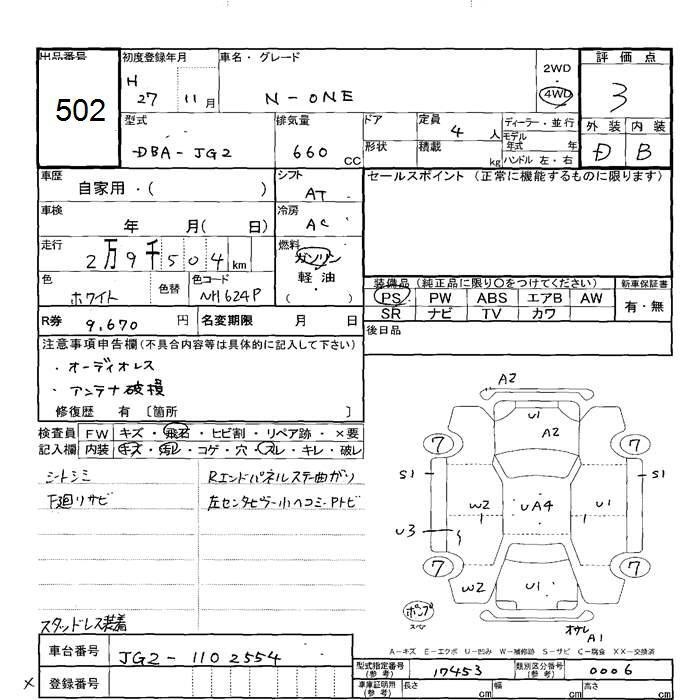 出品番号 初度登録年月 車名・グレード 評価点
502 H 27 11月 N-ONE 2WD 4WD 3
型式 排気量 ドア 定員 ディーラー・並行 外装 内装
DBA-JG2 660 CC 4人 モデル年式 年 D B
形状 積載 kg ハンドル 左・右
車歴 自家用・( ) シフト AT セールスポイント (正常に機能するものに限ります)
車検 年 月( 日) 冷房 AC
走行 2万9千504km 燃料 ガソリン 軽・油 ( )
色 ホワイト 色替 色コード NH624P
装備品 (純正品に限り○をつけてください) 新車保証書
PS PW ABS エアB AW 有・無
SR ナビ TV カワ
R券 9,670円 名変期限 月 日 後日品
注意事項申告欄(不具合内容等は具体的に記入して下さい)
・オーディオレス
・アンテナ破損
修復歴 有 〔箇所 〕
検査員 FW キズ・飛石・ヒビ割・リペア跡・×要
記入欄 内装 キズ・汚レ・コゲ・穴・スレ・キレ・破レ
シートシミ Rエンドパネルステー曲がり
下廻リサビ 左センタピラー小ヘコミ・Pトビ
A2
U1
A2
7 7
S1 S1
W2 UA4 U1
U3
7 7
W2 U1
ポンプ
スペア
オサレ A1
スタッドレス装着
A-キズ E-エクボ U-凹み W-補修跡 S-サビ C-腐食 XX-交換済
車台番号 JG2-1102554
型式指定番号 (参考) 17453 類別区分番号 (参考) 0006
× 登録番号
車庫証明用 (参考) 長さ cm 幅 cm 高さ cm